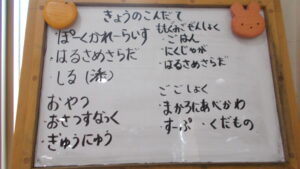 きょうのこんだて
・ぽーくかれーらいす
・はるさめさらだ
・しる(赤)
おやつ
・おさつすなっく
・ぎゅうにゅう
ももぐみごぜんしょく
・ごはん
・にくじゃが
・はるさめさらだ
ごごしょく
・まかろにあべかわ
すーぷ・くだもの